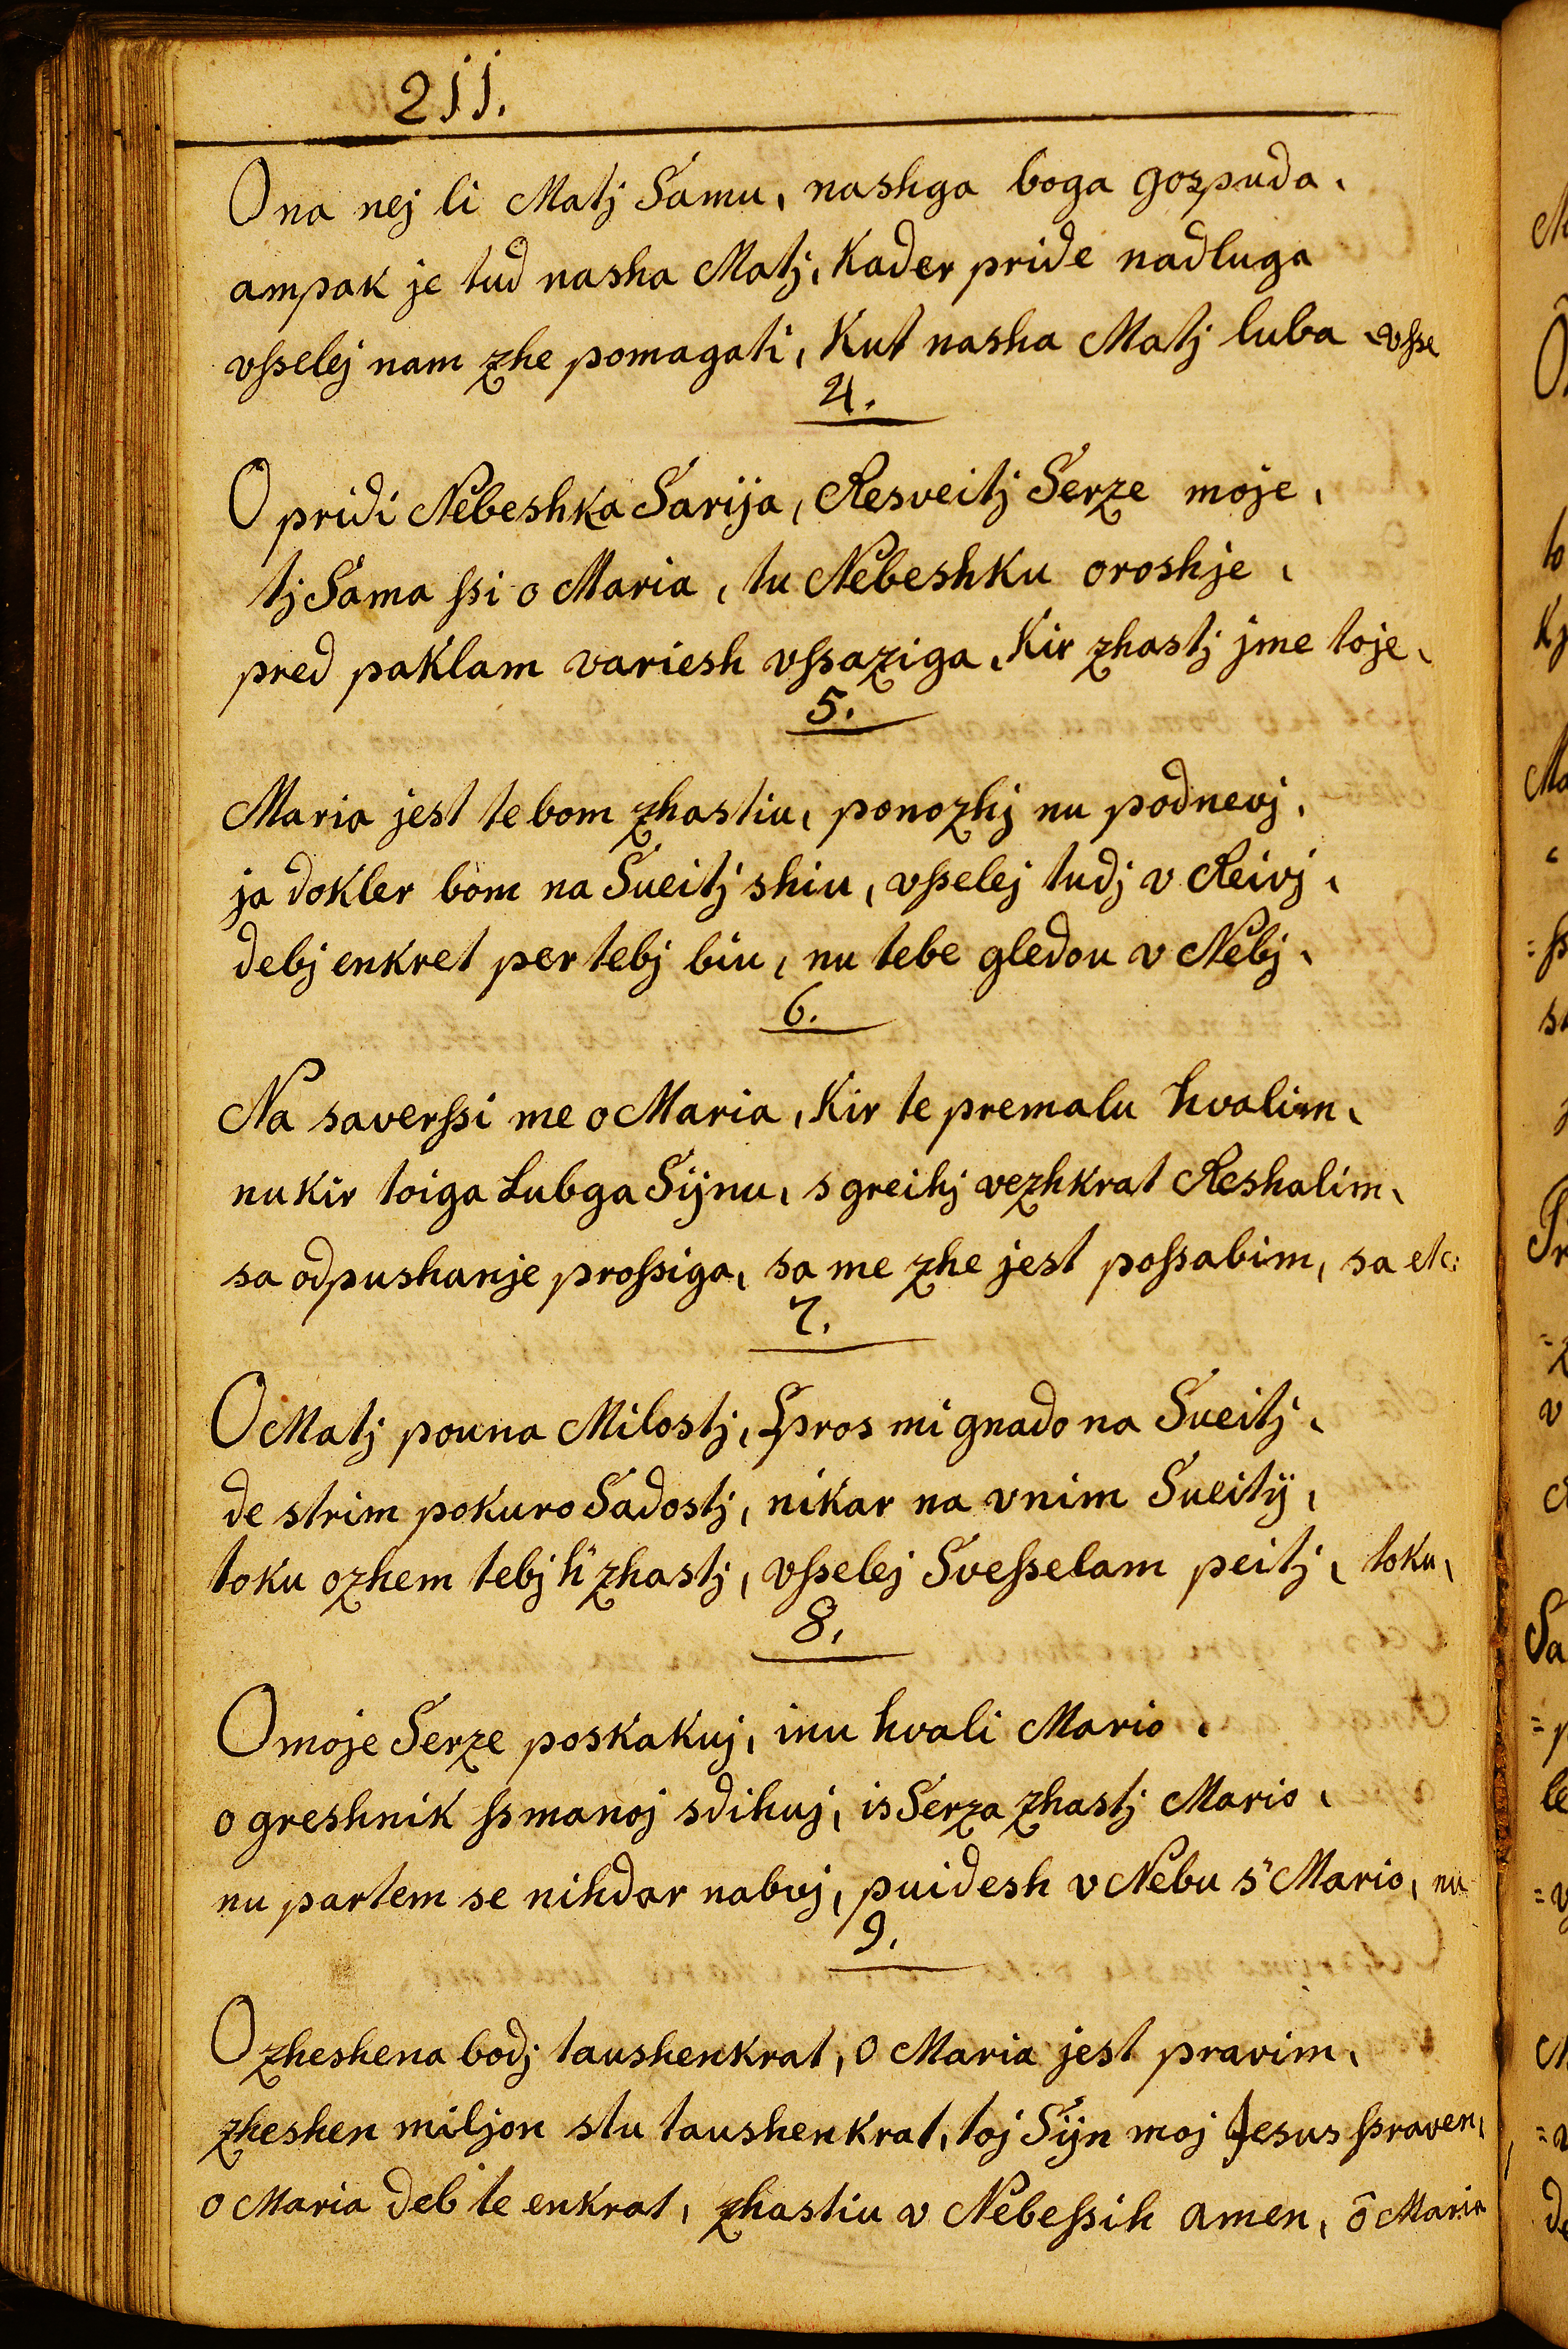 211.
Ona nej li Matj Samu, nashga boga gospuda,
ampak je tud nasha Matj, Kader pride nadluga
vsselej nam zhe pomagati, Kut nasha Matj luba vsse
4.
O pridi Nebeshka Sarija, Resveitj Serze moje,
tj Sama ssi o Maria, tu Nebeshku oroshje,
pred paklam variesh vssaziga, Kir zhastj jme toje,
5.
Maria jest te bom zhastiu, ponozhj nu podnevj,
ja dokler bom na Sueitj shiu, vsselej tudj v Reivj,
debj enkret per tebj biu, nu tebe gledou v Nebj,
6.
Na saverssi me o Maria, Kir te premalu hvalim,
nu kir toiga Lubga Sijnu, s greihj vezhkrat Reshalim,
sa odpushanje prossiga, sa me zhe jest possabim, sa etc:
7.
O Matj pouna Milostj, Spros mi gnado na Sueitj,
de strim pokuro Sadostj, nikar na vnim Sueitij,
toku ozhem tebj h' zhastj, vsselej Svesselam peitj, toku,
8.
O moje Serze poskakuj, inu hvali Mario,
o greshnik ssmanoj sdihuj, is Serza zhastj Mario,
nu partem se nihdar nabvj, puidesh v Nebu s' Mario, nu
9.
O zheshena bodj taushenkrat, o Maria jest pravim,
zheshen miljon stu taushenkrat, toj Sijn moj Jesus ssraven,
o Maria deb te enkrat, zhastiu v Nebessih amen, ô Maria